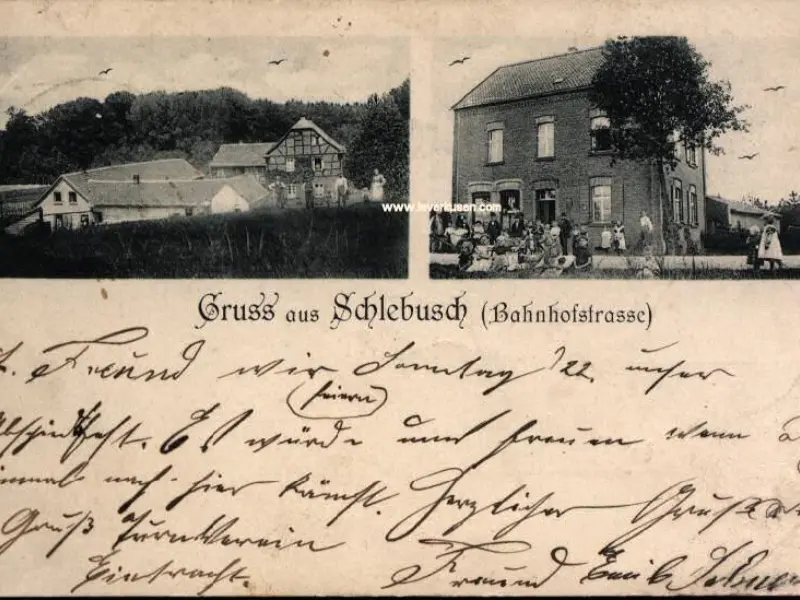 www.leverkusen.com
Gruss aus Schlebusch (Bahnhofstrasse)
Freund wir Sonntag 22. unser
feiern
Abschiedsfest. Es würde uns freuen wenn
nach hier kämst. Herzlicher Gruß
Gruß Turnverein
Eintracht. Freund Emil